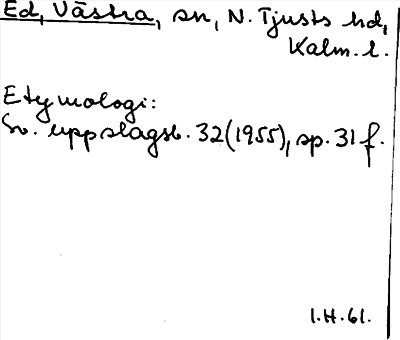 Ed, Västra, sn, N. Tjusts hd,
Kalm. l.
Etymologi:
Sv. uppslagsb. 32 (1955), sp. 31 f.
I.H. 61.